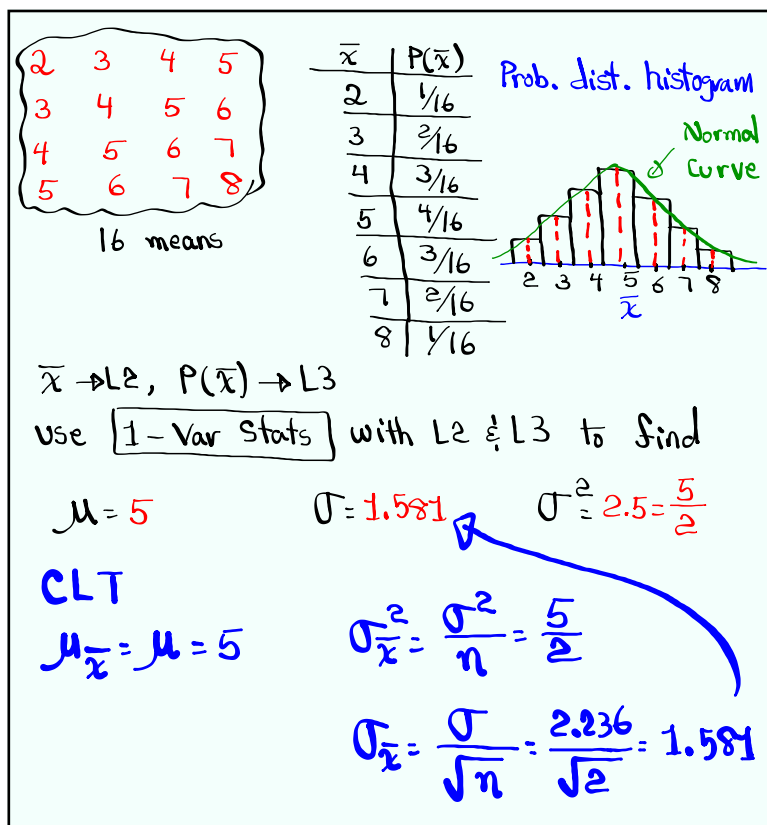 2 3 4 5
3 4 5 6
4 5 6 7
5 6 7 8
16 means
x̄ P(x̄)
2 1/16
3 2/16
4 3/16
5 4/16
6 3/16
7 2/16
8 1/16
Prob. dist. histogram
Normal
Curve
2 3 4 5 6 7 8
x̄
x̄ → L2, P(x̄) → L3
use 1-Var Stats with L2 & L3 to find
μ = 5 σ = 1.581 σ² = 2.5 = 5/2
CLT
μx̄ = μ = 5 σx̄² = σ²/n = 5/2
σx̄ = σ/√n = 2.236/√2 = 1.581